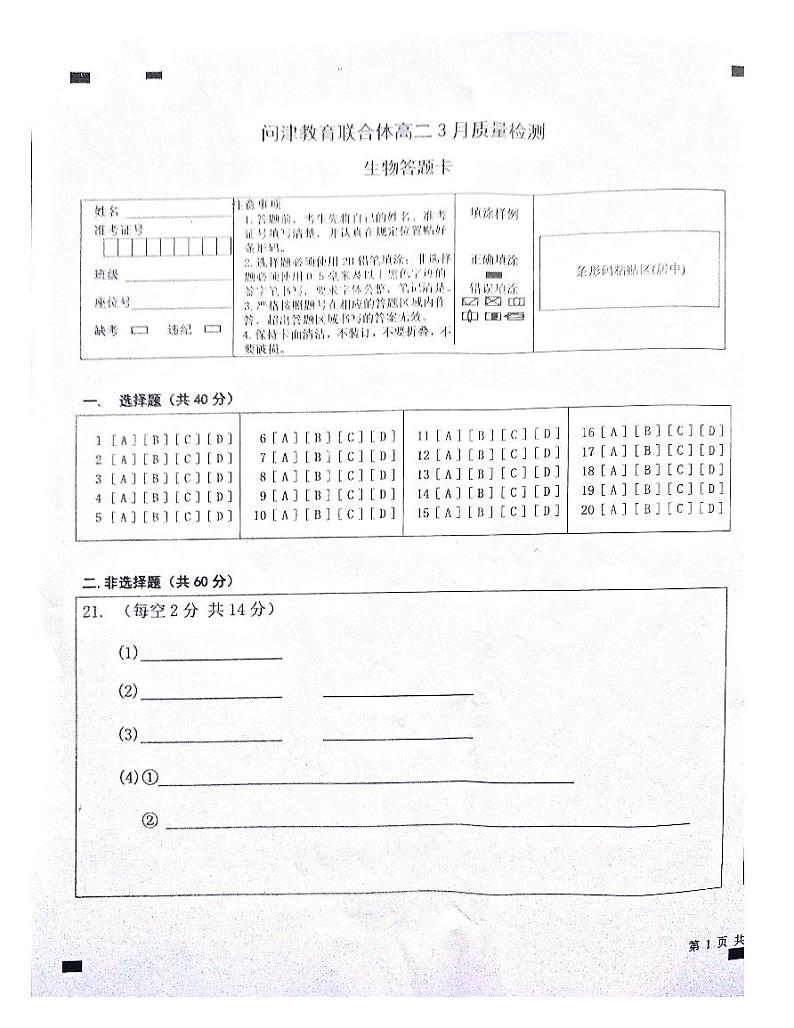 问津教育联合体高二3月质量检测
生物答题卡
姓名
准考证号
班级
座位号
缺考 违纪
注意事项
1.答题前，考生先将自己的姓名、准考
证号填写清楚，并认真在规定位置贴好
条形码。
2.选择题必须使用2B铅笔填涂；非选择
题必须使用0.5毫米及以上黑色字迹的
签字笔书写，要求字体公整，笔记清楚。
3.严格按照题号在相应的答题区域内作
答，超出答题区域书写的答案无效。
4.保持卡面清洁，不装订，不要折叠，不
要破损。
填涂样例
正确填涂
错误填涂
条形码粘贴区(居中)
一. 选择题（共40分）
1 [A][B][C][D]
2 [A][B][C][D]
3 [A][B][C][D]
4 [A][B][C][D]
5 [A][B][C][D]
6 [A][B][C][D]
7 [A][B][C][D]
8 [A][B][C][D]
9 [A][B][C][D]
10 [A][B][C][D]
11 [A][B][C][D]
12 [A][B][C][D]
13 [A][B][C][D]
14 [A][B][C][D]
15 [A][B][C][D]
16 [A][B][C][D]
17 [A][B][C][D]
18 [A][B][C][D]
19 [A][B][C][D]
20 [A][B][C][D]
二.非选择题（共60分）
21. （每空2分 共14分）
(1)
(2)
(3)
(4)①
②
第1页 共